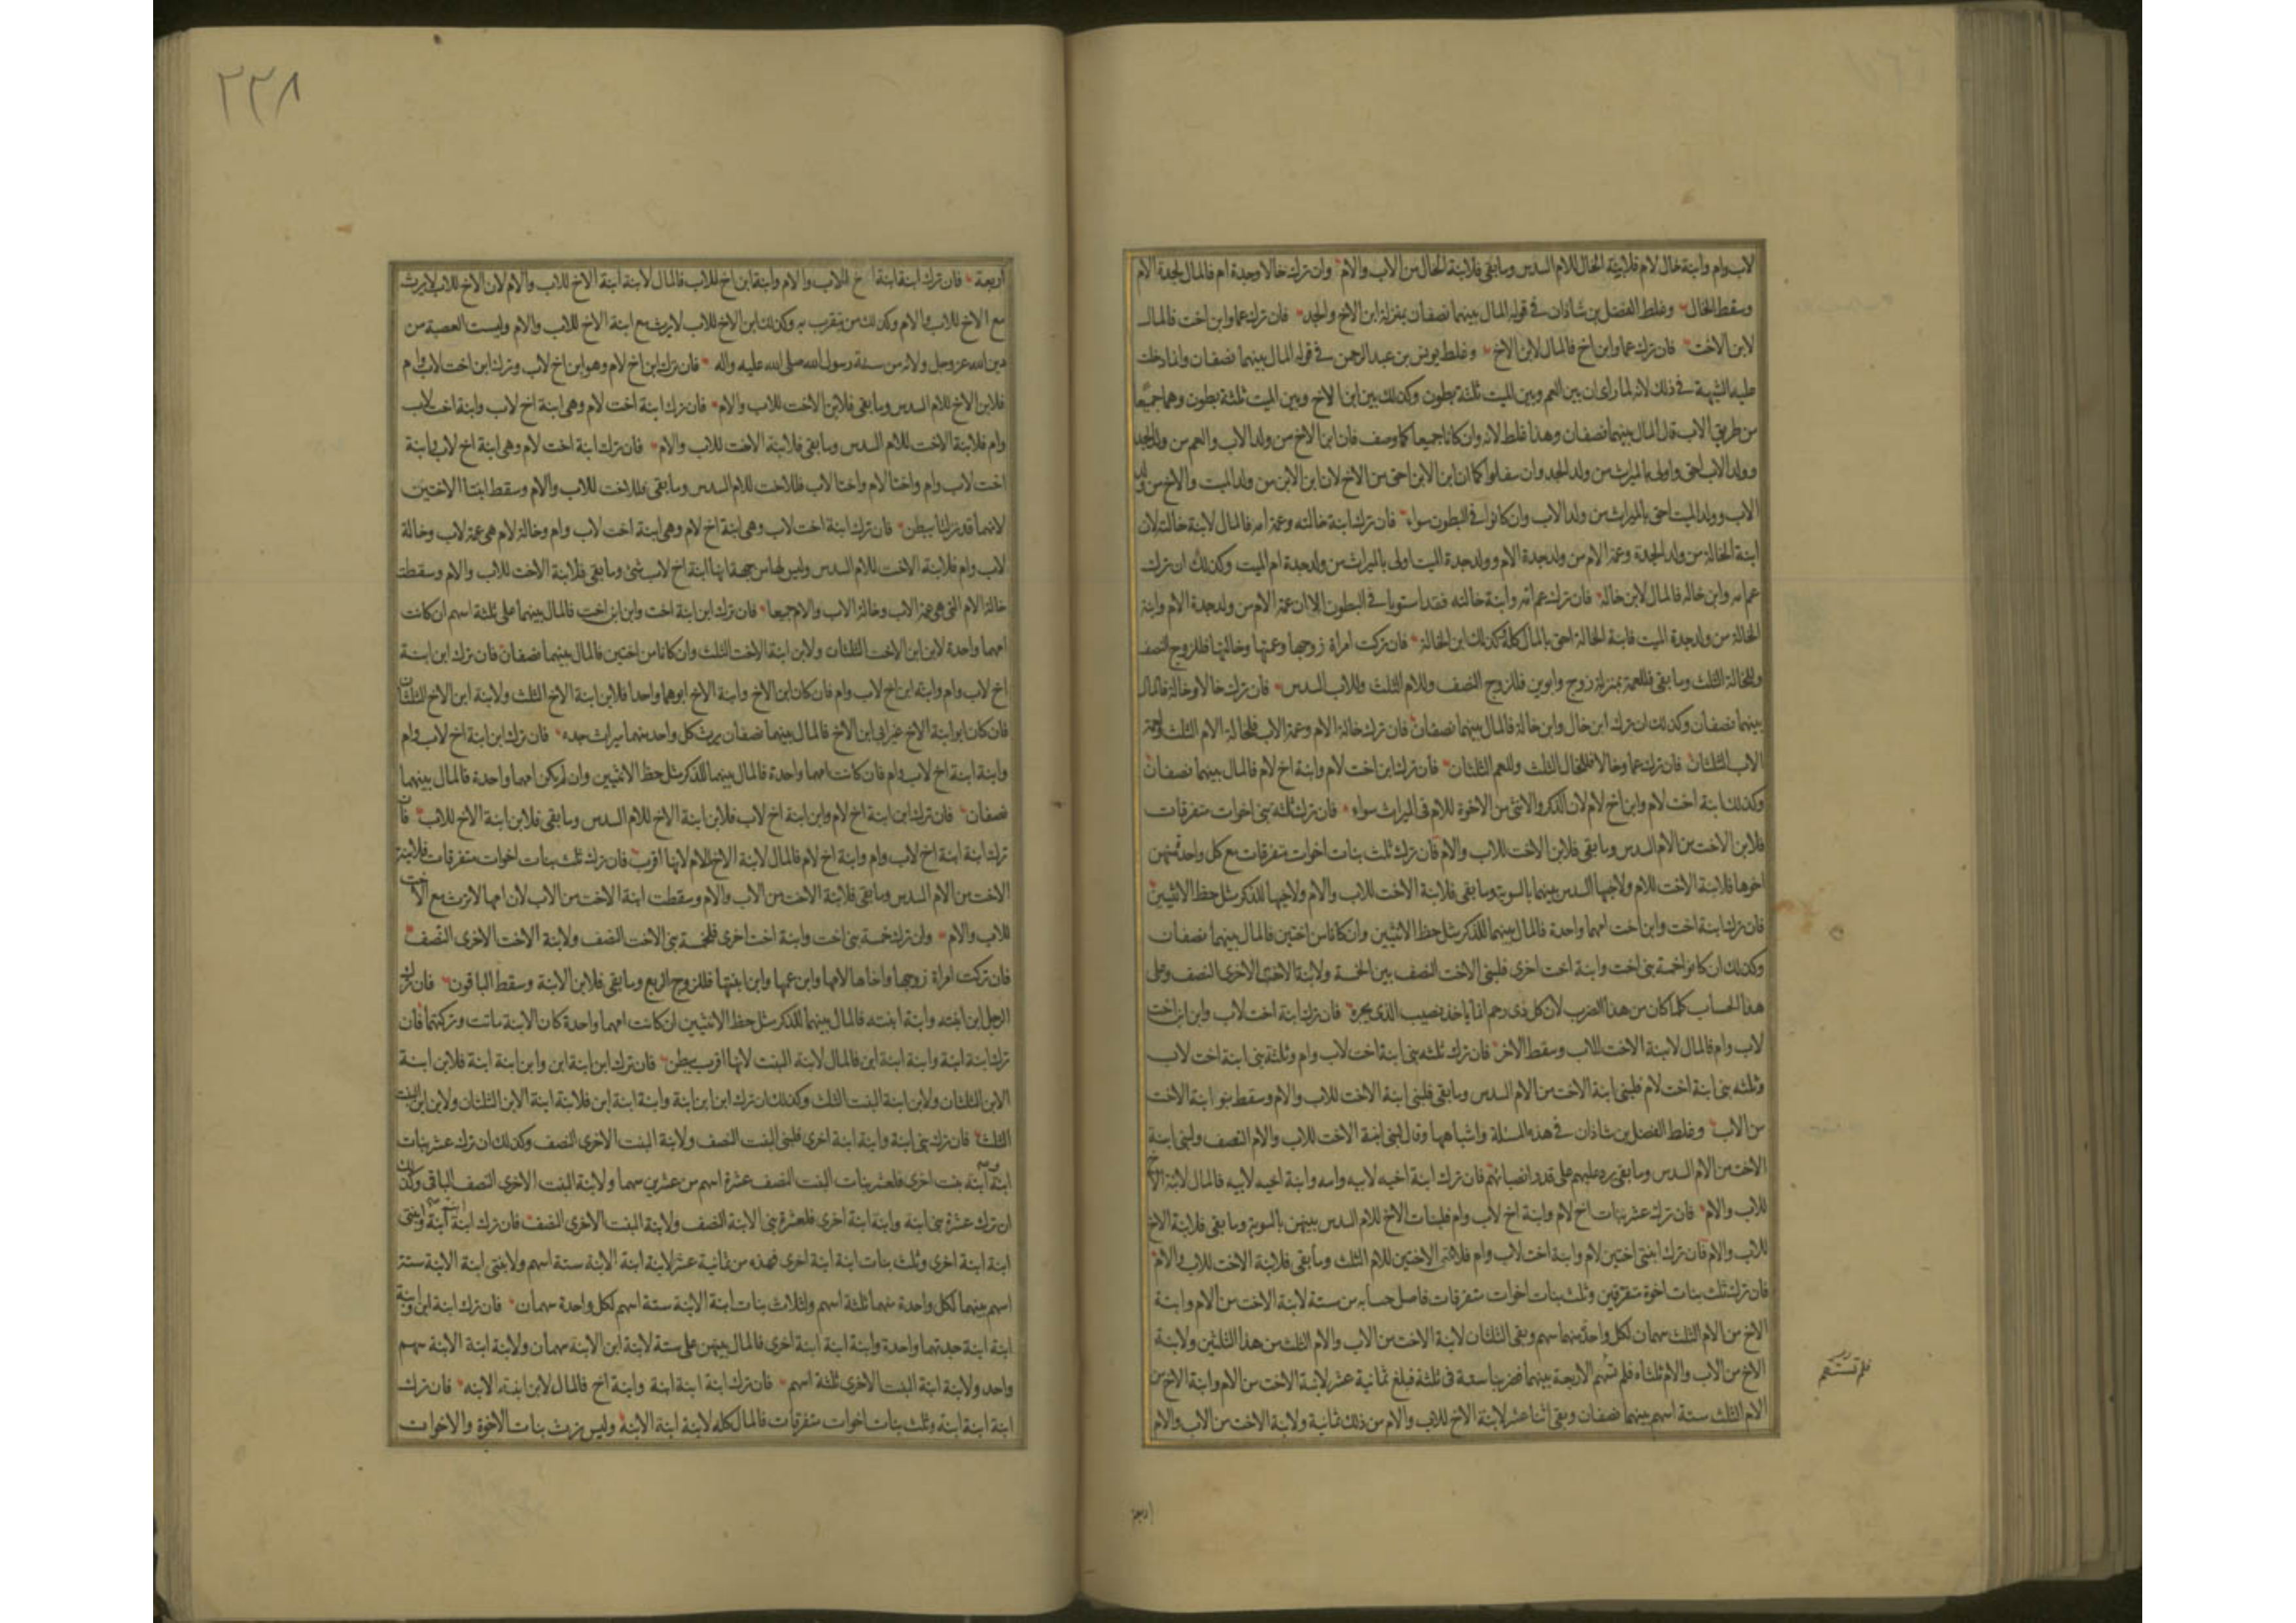 لاب وام وابنة خال لام فلابنة الخال للام السدس وما بقى فلابنة الخال من الاب والام وان ترك خالا وجدة ام فالمال لجدة الام
وسقط الخال وغلط الفضل بن شاذان فى قوله المال بينهما نصفان بمنزلة ابن الاخ والجد فان ترك عما وابن اخت فالمال
لابن الاخت فان ترك عما وابن اخ فالمال لابن الاخ وغلط يونس بن عبد الرحمن فى قوله المال بينهما نصفان وانما دخلت
عليه الشبهة فى ذلك لانه لما راى ان بين العم وبين الميت ثلثة بطون وكذلك بين ابن الاخ وبين الميت ثلثة بطون وهما جميعا
من طريق الاب قال المال بينهما نصفان وهذا غلط لانه وان كانا جميعا كما وصف فان ابن الاخ من ولد الاب والعم من ولد الجد
وولد الاب احق واولى بالميراث من ولد الجد وان سفلوا كما ان ابن الابن احق من الاخ لان ابن الابن من ولد الميت والاخ من ولد
الاب وولد الميت احق بالميراث من ولد الاب وان كانوا فى البطون سواء فان ترك ابنة خالته وعمة امه فالمال لابنة خالته لان
ابنة الخالة من ولد الجدة وعمة الام من ولد جدة الام وولد جدة الميت اولى بالميراث من ولد جدة ام الميت وكذلك ان ترك
عم امه وابن خاله فالمال لابن خاله فان ترك عم امه وابنة خالته فقد استويا فى البطون الا ان عمة الام من ولد جدة الام وابنة
الخالة من ولد جدة الميت فابنة الخالة احق بالمال كله وكذلك ابن الخالة فان تركت امراة زوجها وعمتها وخالتها فللزوج النصف
وللخالة الثلث وما بقى فللعمة بمنزلة زوج وابوين فللزوج النصف وللام الثلث وللاب السدس فان ترك خالا وخالة فالمال
بينهما نصفان وكذلك ان ترك ابن خال وابن خالة فالمال بينهما نصفان فان ترك خالة الام وعمة الاب فلخالة الام الثلث ولعمة
الاب الثلثان فان ترك عما وخالا فللخال الثلث وللعم الثلثان فان ترك ابن اخت لام وابنة اخ لام فالمال بينهما نصفان
وكذلك ابنة اخت لام وابن اخ لام لان الذكر والانثى من الاخوة للام فى الميراث سواء فان ترك ثلثة بنى اخوات متفرقات
فلابن الاخت من الام السدس وما بقى فلابن الاخت للاب والام فان ترك ثلث بنات اخوات متفرقات مع كل واحدة منهن
اخوها فلابنة الاخت للام ولاخيها السدس بينهما بالسوية وما بقى فلابنة الاخت للاب والام ولاخيها للذكر مثل حظ الانثيين
فان ترك ابنة اخت وابن اخت امهما واحدة فالمال بينهما للذكر مثل حظ الانثيين وان كانا من اختين فالمال بينهما نصفان
وكذلك ان كانوا خمسة بنى اخت وابنة اخت اخرى فلبنى الاخت النصف بين الخمسة ولابنة الاخت الاخرى النصف وعلى
هذا الحساب كلما كان من هذا الضرب لان كل ذى رحم انما ياخذ نصيب الذى يجره فان ترك ابنة اخت لاب وابن ابن اخت
لاب وام فالمال لابنة الاخت للاب وسقط الاخر فان ترك ثلثه بنى ابنة اخت لاب وام وثلثة بنى ابنة اخت لاب
وثلثه بنى ابنة اخت لام فلبنى ابنة الاخت من الام السدس وما بقى فلبنى ابنة الاخت للاب والام وسقط بنو ابنة الاخت
من الاب وغلط الفضل بن شاذان فى هذه المسئلة واشباهها وقال لبنى ابنة الاخت للاب والام النصف ولبنى ابنة
الاخت من الام السدس وما بقى رد عليهم على قدر انصبائهم فان ترك ابنة اخيه لابيه وامه وابنة اخيه لابيه فالمال لابنة الاخ
للاب والام فان ترك عشر بنات اخ لام وابنة اخ لاب وام فلبنات الاخ للام السدس بينهن بالسوية وما بقى فلابنة الاخ
للاب والام فان ترك ابنتى اختين لام وابنة اخت لاب وام فلابنتى الاختين للام الثلث وما بقى فلابنة الاخت للاب والام
فان ترك ثلث بنات اخوة متفرقين وثلث بنات اخوات متفرقات فاصل حسابه من ستة لابنة الاخت من الام وابنة
الاخ من الام الثلث سهمان لكل واحدة منهما سهم وبقى الثلثان لابنة الاخت من الاب والام الثلث من هذا الثلثين ولابنة
الاخ من الاب والام ثلثاه فلم تسهم الاربعة بينهما فضربنا ستة فى ثلثة فبلغ ثمانية عشر لابنة الاخت من الام وابنة الاخ من
الام الثلث ستة اسهم بينهما نصفان وبقى اثنا عشر لابنة الاخ للاب والام من ذلك ثمانية ولابنة الاخت من الاب والام
فلم تستقم
اربعة
٢٢٨
اربعة فان ترك ابنة ابنة اخ للاب والام وابنة ابن اخ للاب فالمال لابنة ابنة الاخ للاب والام لان الاخ للاب لا يرث
مع الاخ للاب والام وكذلك من يتقرب به وكذلك ابن الاخ للاب لا يرث مع ابنة الاخ للاب والام وليست العصبة من
دين الله عز وجل ولا من سنة رسول الله صلى الله عليه واله فان ترك ابن اخ لام وهو ابن اخ لاب وترك ابن اخت لاب وام
فلابن الاخ للام السدس وما بقى فلابن الاخت للاب والام فان ترك ابنة اخت لام وهى ابنة اخ لاب وابنة اخت لاب
وام فلابنة الاخت للام السدس وما بقى فلابنة الاخت للاب والام فان ترك ابنة اخت لام وهى ابنة اخ لاب وابنة
اخت لاب وام واختا لام واختا لاب وام فللاخت للام السدس وما بقى فللاخت للاب والام وسقط ابنتا الاختين
لانهما قد نزلتا ببطن فان ترك ابنة اخت لاب وهى ابنة اخ لام وهى ابنة اخت لاب وام وخالة لام هى عمة لاب وخالة
لاب وام فلابنة الاخت للام السدس وليس لها من جهة انها ابنة اخ لاب شئ وما بقى فلابنة الاخت للاب والام وسقطت
خالة الام التى هى عمة الاب وخالة الاب والام جميعا فان ترك ابن ابنة اخت وابن ابن اخت فالمال بينهما على ثلثة اسهم ان كانت
امهما واحدة لابن ابن الاخت الثلثان ولابن ابنة الاخت الثلث وان كانا من اختين فالمال بينهما نصفان فان ترك ابن ابنة
اخ لاب وام وابنه ابن اخ لاب وام فان كان ابن الاخ وابنة الاخ ابوهما واحدا فلابن ابنة الاخ الثلث ولابنة ابن الاخ الثلثان
فان كان ابو ابنة الاخ غير ابى ابن الاخ فالمال بينهما نصفان يرث كل واحد منهما ميراث جده فان ترك ابن ابنة اخ لاب وام
وابنة ابنة اخ لاب وام فان كانت امهما واحدة فالمال بينهما للذكر مثل حظ الانثيين وان لم يكن امهما واحدة فالمال بينهما
نصفان فان ترك ابن ابنة اخ لام وابن ابنة اخ لاب فلابن ابنة الاخ للام السدس وما بقى فلابن ابنة الاخ للاب فان
ترك ابنة ابنة اخ لاب وام وابنة اخ لام فالمال لابنة الاخ للام لانها اقرب فان ترك ثلث بنات اخوات متفرقات فلابنة
الاخت من الام السدس وما بقى فلابنة الاخت من الاب والام وسقطت ابنة الاخت من الاب لان امها لا ترث مع الاخت
للاب والام وان ترك خمسة بنى اخت وابنة اخت اخرى فلخمسة بنى الاخت النصف ولابنة الاخت الاخرى النصف
فان تركت امراة زوجها واخاها لامها وابن عمها وابن ابنتها فللزوج الربع وما بقى فلابن الابنة وسقط الباقون فان ترك
الرجل ابن ابنته وابنة ابنته فالمال بينهما للذكر مثل حظ الانثيين ان كانت امهما واحدة كان الابنة ماتت وتركتهما فان
ترك ابنة ابنة وابنة ابنة ابن فالمال لابنة البنت لانها اقرب ببطن فان ترك ابن ابنة ابن وابن ابنة ابنة فلابن ابنة
الابن الثلثان ولابن ابنة البنت الثلث وكذلك ان ترك ابن ابن ابنة وابنة ابنة ابن فلابنة ابنة الابن الثلثان ولابن ابن البنت
الثلث فان ترك بنى ابنة وابنة ابنة اخرى فلبنى البنت النصف ولابنة البنت الاخرى النصف وكذلك ان ترك عشر بنات
ابنة وابنة بنت اخرى فلعشر بنات البنت النصف عشرة اسهم من عشرين سهما ولابنة البنت الاخرى النصف الباقى وكذلك
ان ترك عشرة بنى ابنة وابنة ابنة اخرى فلعشرة بنى الابنة النصف ولابنة البنت الاخرى النصف فان ترك ابنة ابنة ابنة وابنتى
ابنة ابنة اخرى وثلث بنات ابنة ابنة اخرى فهذه من ثمانية عشر لابنة ابنة الابنة ستة اسهم ولابنتى ابنة الابنة ستة
اسهم بينهما لكل واحدة منهما ثلثة اسهم ولثلاث بنات ابنة الابنة ستة اسهم لكل واحدة سهمان فان ترك ابنة ابن ابنة وابنة
ابنة ابنة جدتهما واحدة وابنة ابنة ابنة اخرى فالمال بينهن على ستة لابنة ابن الابنة سهمان ولابنة ابنة الابنة سهم
واحد ولابنة ابنة البنت الاخرى ثلثة اسهم فان ترك ابنة ابنة ابنة وابنة اخ فالمال لابن ابنة الابنه فان ترك
ابنة ابنة ابنة وثلث بنات اخوات متفرقات فالمال كله لابنة ابنة الابنة وليس يرث بنات الاخوة والاخوات